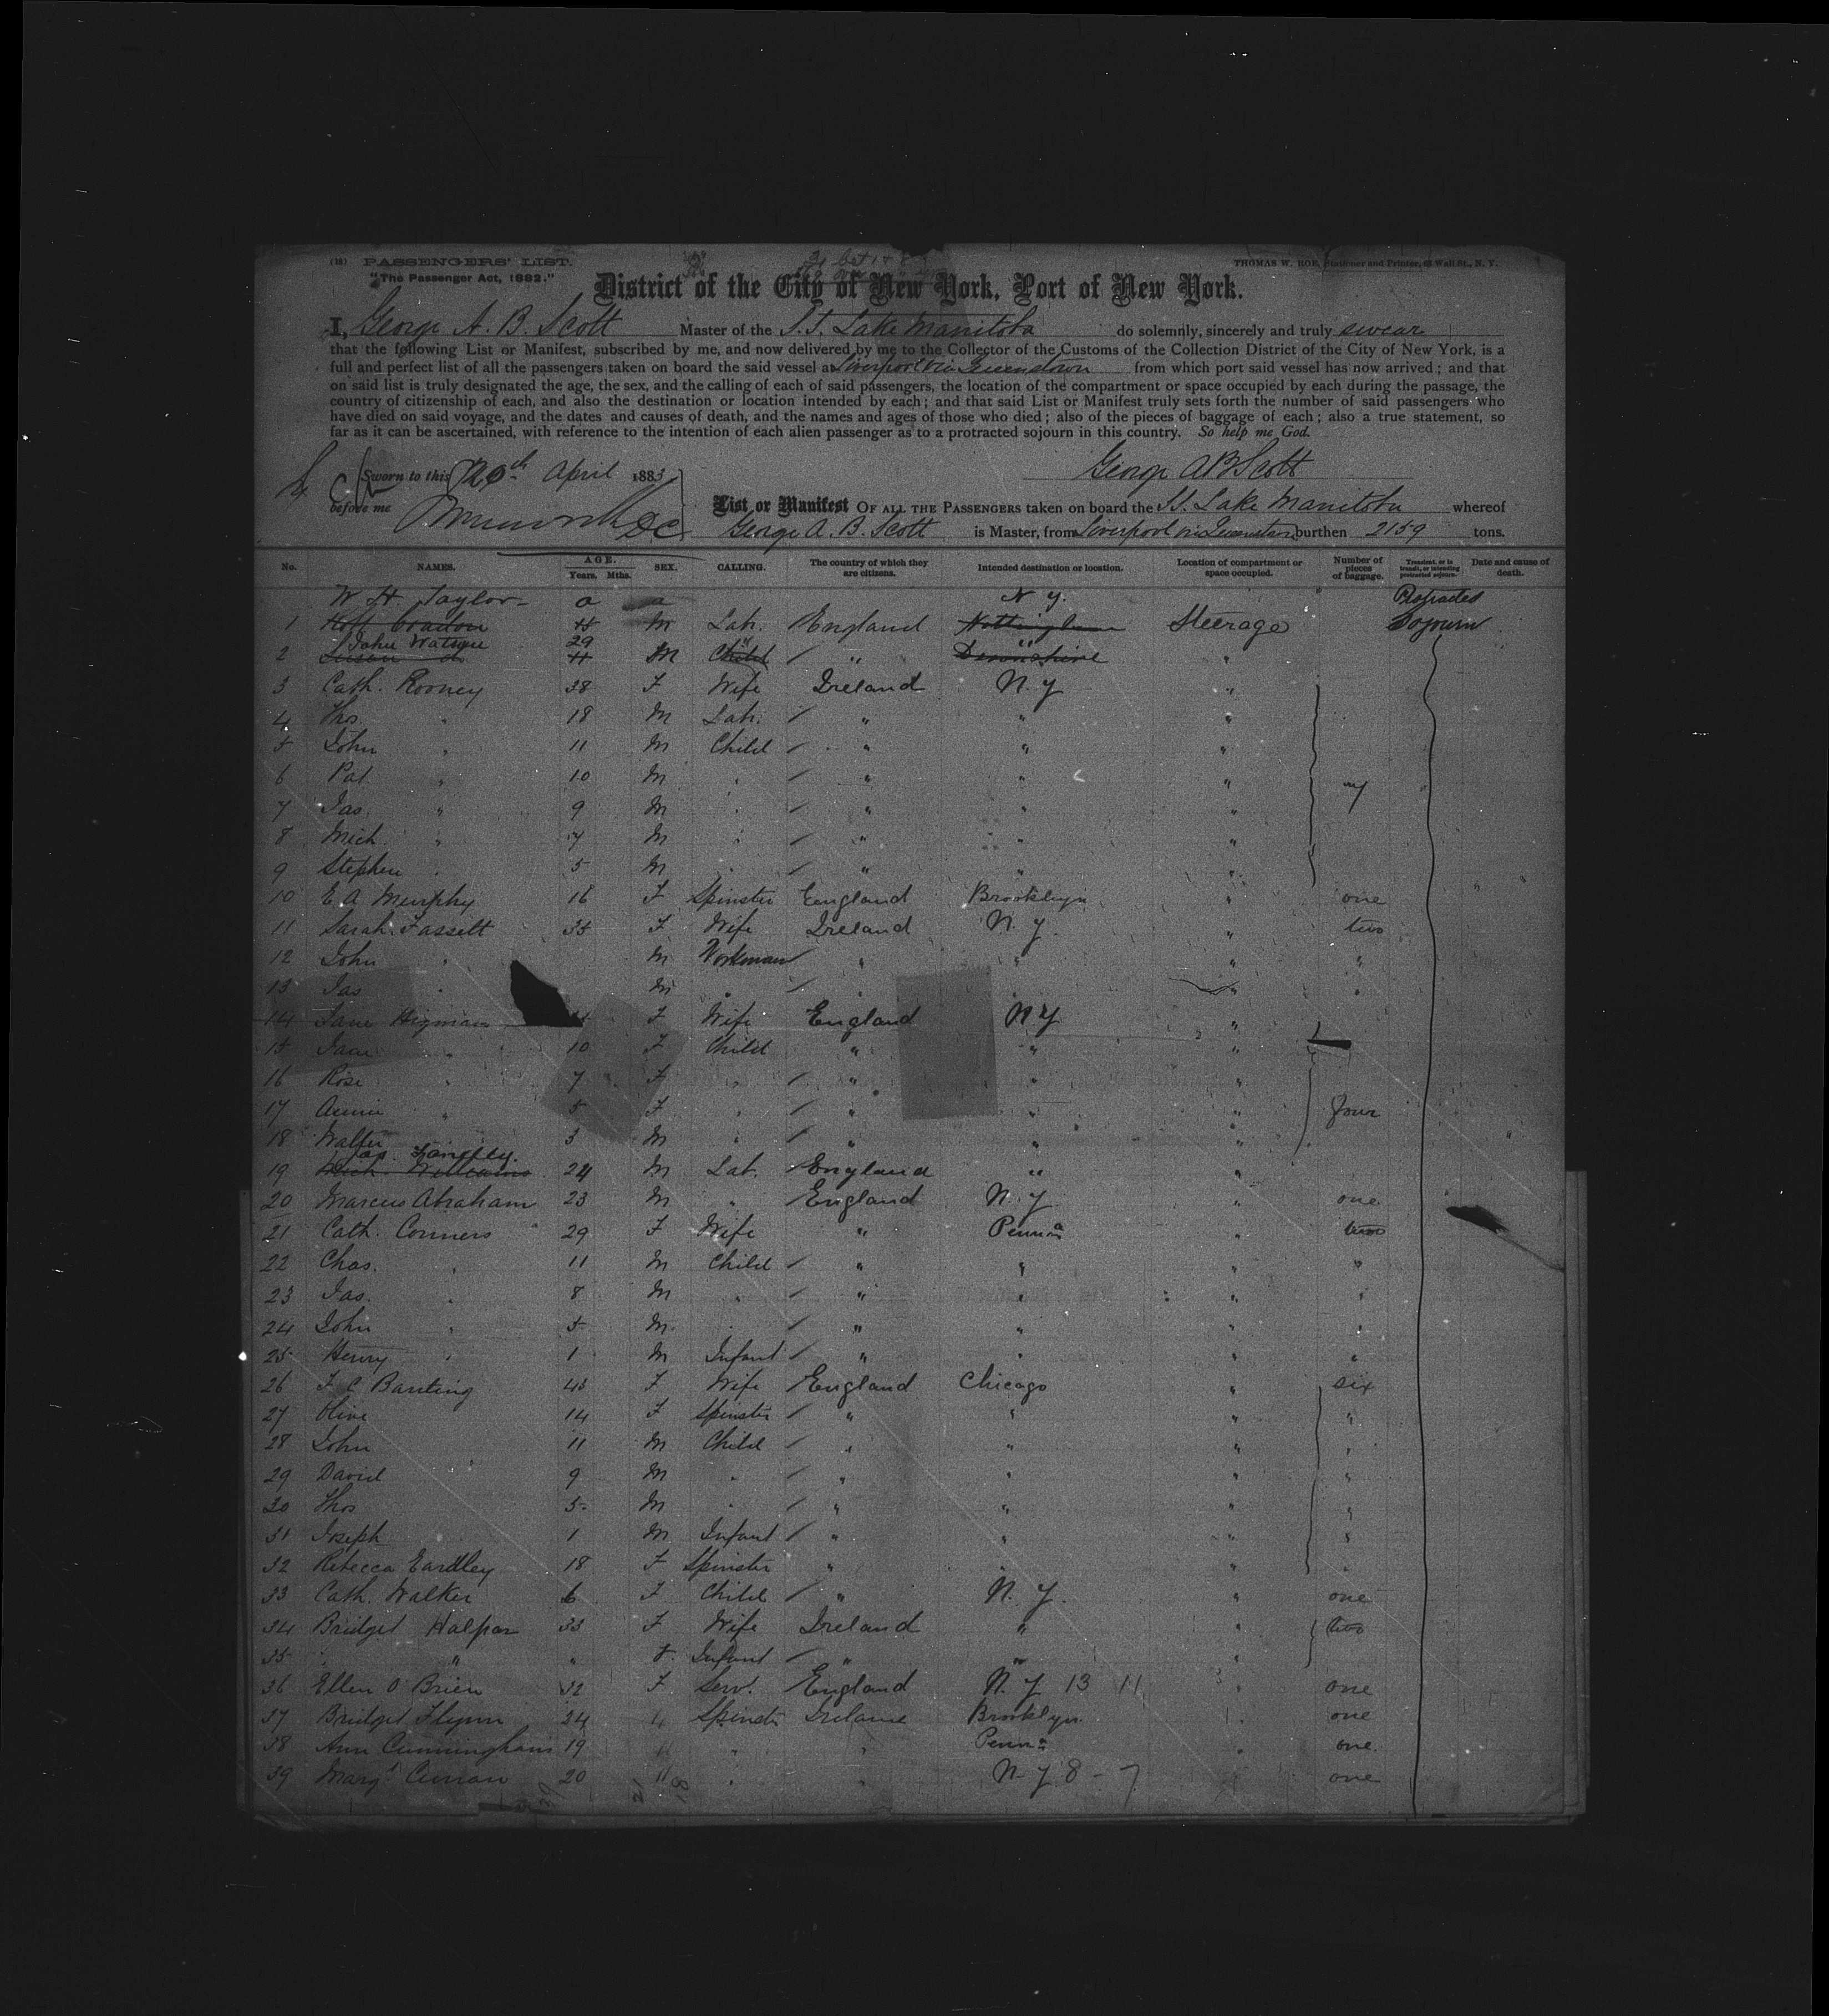 (18) PASSENGERS' LIST.
THOMAS W. ROE, Stationer and Printer, 63 Wall St., N. Y.
"The Passenger Act, 1882."
District of the City of New York, Port of New York.
I, George A. B. Scott Master of the S.S. Lake Manitoba do solemnly, sincerely and truly swear
that the following List or Manifest, subscribed by me, and now delivered by me to the Collector of the Customs of the Collection District of the City of New York, is a
full and perfect list of all the passengers taken on board the said vessel at Liverpool via Queenstown from which port said vessel has now arrived; and that
on said list is truly designated the age, the sex, and the calling of each of said passengers, the location of the compartment or space occupied by each during the passage, the
country of citizenship of each, and also the destination or location intended by each; and that said List or Manifest truly sets forth the number of said passengers who
have died on said voyage, and the dates and causes of death, and the names and ages of those who died; also of the pieces of baggage of each; also a true statement, so
far as it can be ascertained, with reference to the intention of each alien passenger as to a protracted sojourn in this country. So help me God.
Sworn to this 20th April 1883
George A B Scott
before me
List or Manifest OF ALL THE PASSENGERS taken on board the SS. Lake Manitoba whereof
George A. B. Scott is Master, from Liverpool via Queenstown burthen 2159 tons.
No. NAMES. AGE. Years. Mths. SEX. CALLING. The country of which they are citizens. Intended destination or location. Location of compartment or space occupied. Number of pieces of baggage. Transient, or in transit, or intending protracted sojourn. Date and cause of death.
W H Taylor a a N Y. Protracted
1 M Lab. England Steerage Sojourn
John Watson 29
2 M Child " " "
3 Cath. Rooney 38 F Wife Ireland N. Y "
4 Thos. " 18 M Lab. " " "
5 John " 11 M Child " " "
6 Pat " 10 M " " " "
7 Jas. " 9 M " " " "
8 Mich. " 7 M " " " "
9 Stephen " 5 M " " " "
10 E. A Murphy 16 F Spinster England Brooklyn " one
11 Sarah Fassett 35 F Wife Ireland N. Y. " two
12 John " M Workman " " " "
13 Jas " M " " " "
14 Jane Higman F Wife England N Y "
15 Jane " 10 F Child " " "
16 Rose " 7 F " " " "
17 Annie " 5 F " " " " four
18 Walter 3 M " " " "
19 Mich. Williams 24 M Lab. England " "
20 Marcus Abraham 23 M " England N. Y " one
21 Cath. Conners 29 F Wife " Penna "  two
22 Chas. " 11 M Child " " " "
23 Jas. " 8 M " " " " "
24 John " 5 M " " " " "
25 Henry " 1 M Infant " " " "
26 F C Banting 45 F Wife England Chicago " six
27 Olive 14 F Spinster " " " "
28 John 11 M Child " " " "
29 David " 9 M " " " " "
30 Thos 5 M " " " " "
31 Joseph 1 M Infant " " " "
32 Rebecca Eardley 18 F Spinster " " " "
33 Cath. Walker 6 F Child " N. Y. " one
34 Bridget Halpan 33 F Wife Ireland " " two
35 " " " F. Infant " " "
36 Ellen O'Brien 32 F Serv. England N. Y 13 11 " one
37 Bridget Flynn 24 " Spinster Ireland Brooklyn " one
38 Ann Cunningham 19 " " " Penna " one
39 Margt Curran 20 " " " N. Y 8 - 7 one